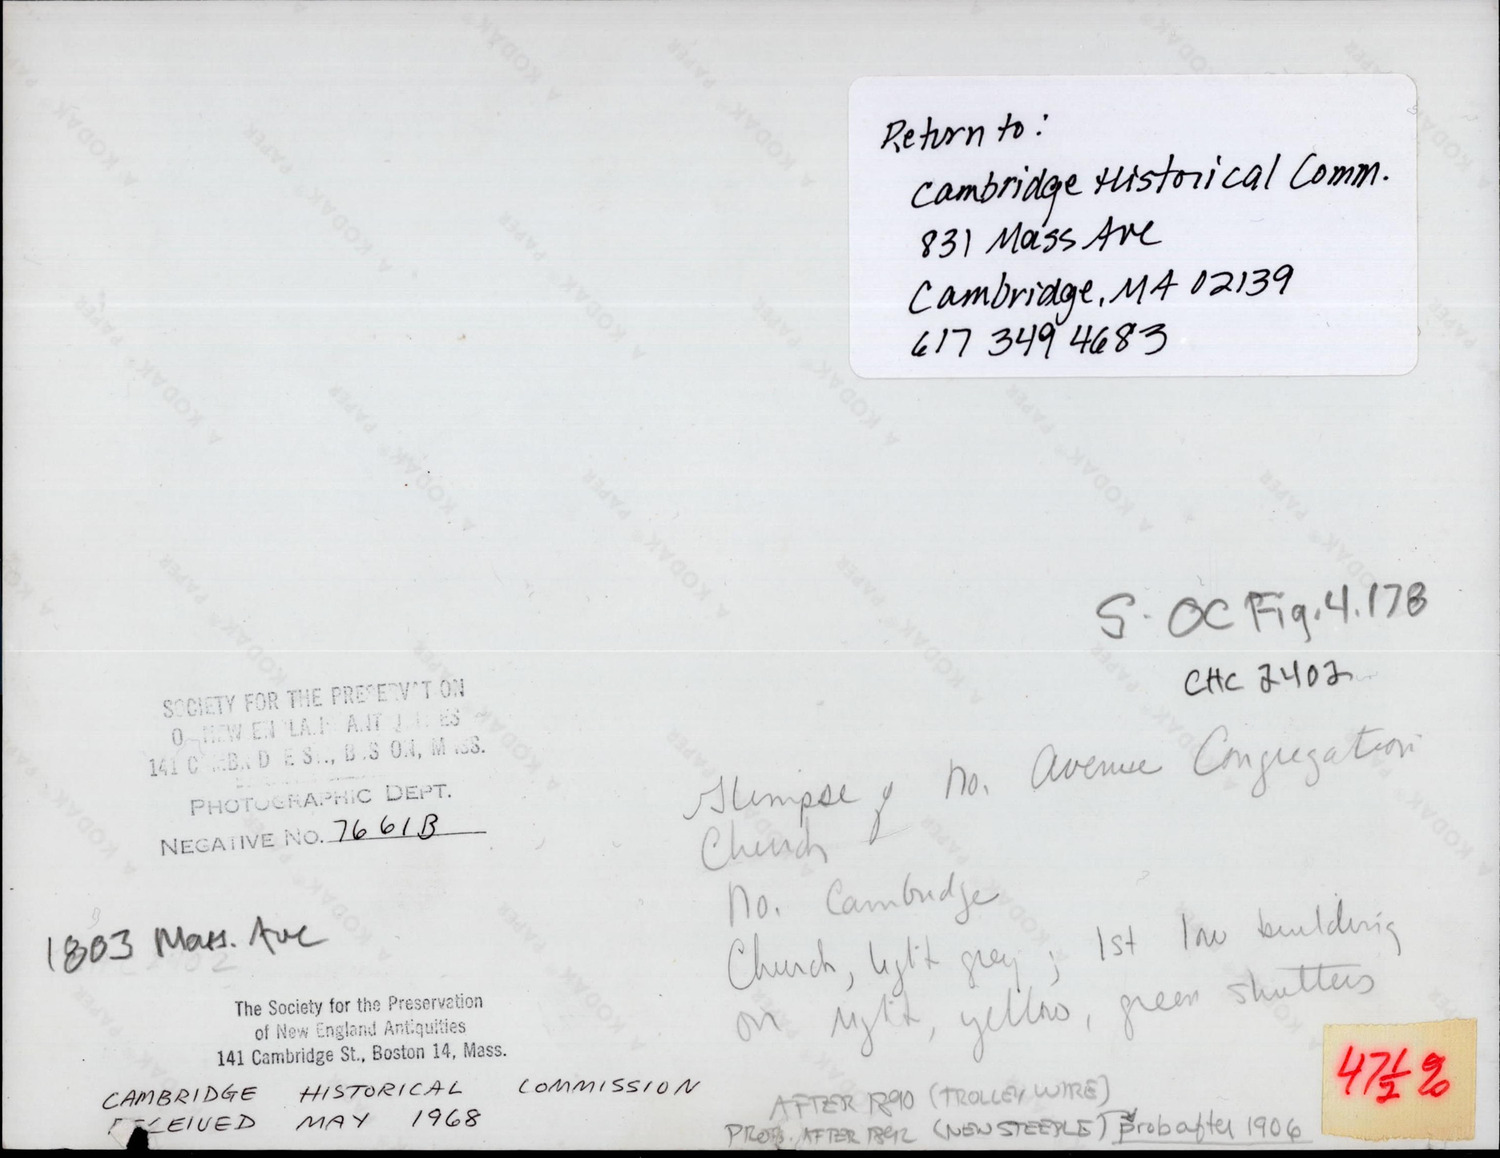 Return to:
Cambridge Historical Comm.
831 Mass Ave
Cambridge, MA 02139
617 349 4683
S. OC Fig. 4.178
CHC 2402
SOCIETY FOR THE PRESERVATION
141 BOSTON, MASS.
PHOTOGRAPHIC DEPT.
NEGATIVE NO. 7661B
Glimpse of No. Avenue Congregation
Church
No. Cambridge
Church, light grey; 1st low building
on right, yellow, green shutters
1803 Mass. Ave
The Society for the Preservation
of New England Antiquities
141 Cambridge St., Boston 14, Mass.
CAMBRIDGE HISTORICAL COMMISSION
RECEIVED MAY 1968
AFTER 1890 (TROLLEY WIRE)
PROB. AFTER 1892 (NEW STEEPLE) prob after 1906
47½ %
A KODAK® PAPER